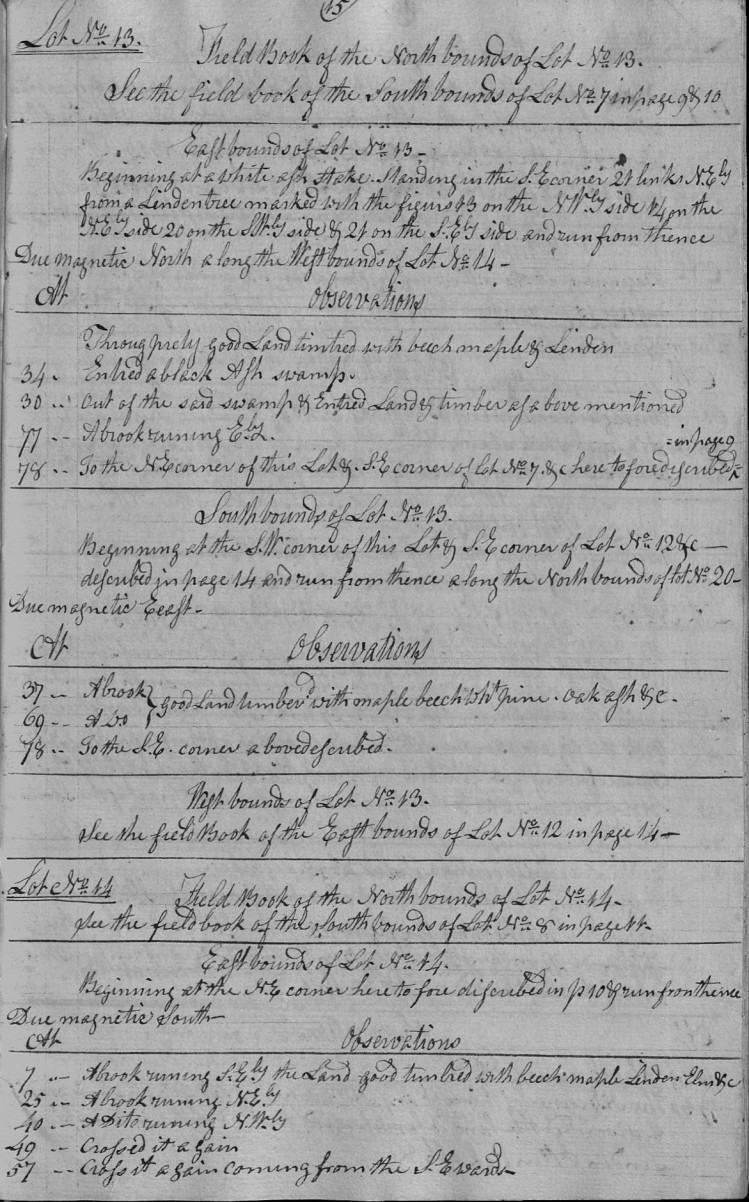 15
Lot No 13.
Field Book of the North bounds of Lot No 13.
See the field book of the South bounds of Lot No 7 in page 9 & 10
East bounds of Lot No 13 -
Beginning at a white ash stake standing in the S.E corner 21 links N.Ely
from a Linden tree marked with the figurs 13 on the N.Wly side 14 on the
N.Ely side 20 on the S.Wly side & 21 on the S.Ely side and run from thence
Due magnetic North along the West bounds of Lot No 14 -
At Observations
Throug prety good Land timbred with beech maple & Linden
34 - Entred a black Ash swamp.
30 -- out of the said swamp & Entred Land & timber as above mentioned
77 -- A brook runing Ely.
=in page 9
78 -- To the N.E corner of this Lot & S.E corner of lot No 7 &c here to fore discribed =
South bounds of Lot No 13.
Beginning at the S.W. corner of this Lot & S.E corner of Lot No 12 &c -
described in page 14 and run from thence along the North bounds of lot No 20 -
Due magnetic Eeast -
At Observations
37 -- A brook } good Land timberd with maple beech Wht pine . oak ash &c.
69 -- A Do
78 -- To the S.E. corner above described.
West bounds of Lot No 13.
See the field Book of the East bounds of Lot No 12 in page 14 -
Lot No 14
Field Book of the North bounds of Lot No 14 -
See the field book of the South bounds of Lot No 8 in page 11 -
East bounds of Lot No 14.
Beginning at the N.E corner here to fore discribed in p 10 & run from thence
Due magnetic South -
At Observations
7 -- A brook runing S.Ely the Land good timbred with beech maple Linden Elm &c
25 -- A brook runing N.Ely
40 -- A Dito runing N.Wly
49 -- Crossed it again
57 -- Cross it again coming from the S.E wards -